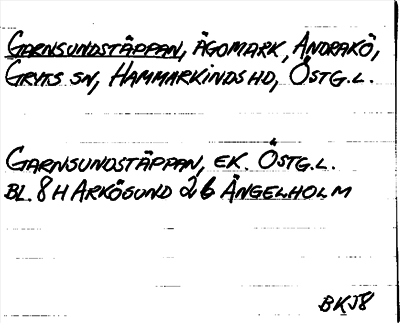 GARNSUNDSTÄPPAN, ÄGOMARK, ANDRAKÖ,
GRYTS SN, HAMMARKINDS HD, ÖSTG.L.
GARNSUNDSTÄPPAN, EK. ÖSTG.L.
BL. 8H ARKÖSUND 26 ÄNGELHOLM
BKJ8